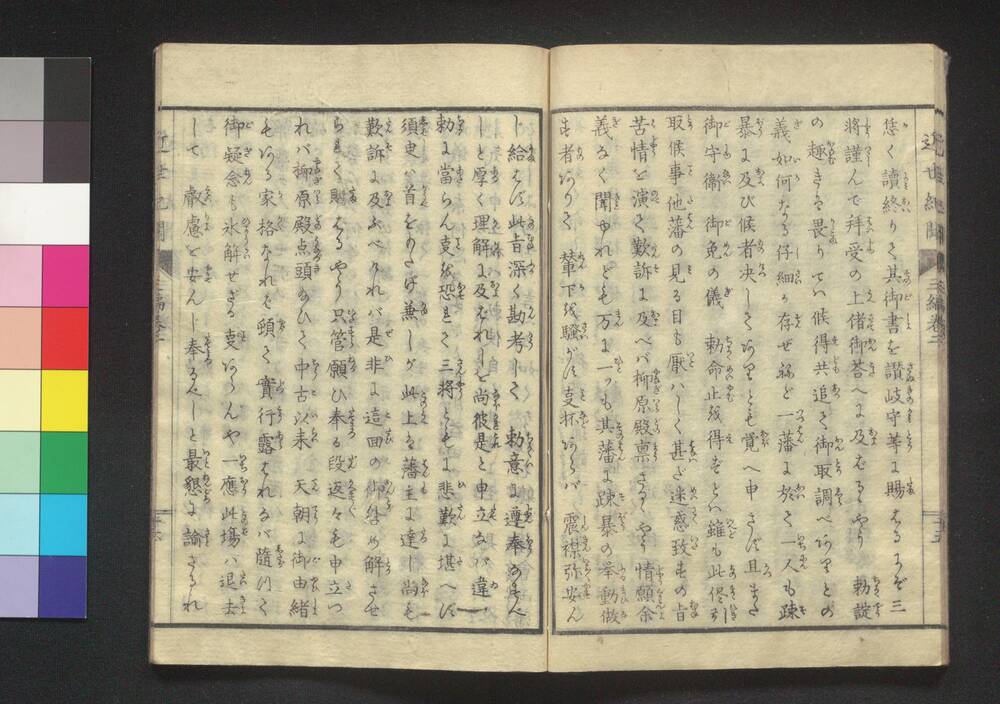 悠く讀終りて其御書を讃岐守等に賜はるにぞ三
將謹んで拜受の上偖御荅へに及はるゝやう 勅諚
の趣き奉畏りてハ候得共追て御取調べありとの
義如何なる仔細か存ぜねど一藩に於て一人も疎
暴に及び候者决してありとも覚へ申さず且また
御守衛御免の儀 勅命止を得ずとハ雖も此侭引
取候事他藩の見る目も厭ハしく甚ざ迷惑致すの旨
苦情を演て歎訴に及べバ柳原殿禀さるゝやう情願余
義なく聞ゆれども万に一つも其藩に疎暴の挙動做
す者ありて 輦下を騒がす支抔あらバ 震襟弥安ん
じ給はず此旨深く勘考して 勅意に遵奉あるべ
しと厚く理解に及ばれしを尚彼是と申立なバ違
勅に當らん支を恐れて三將ともに悲歎に堪へず
須臾ハ首をのミ低兼しが此上は藩主に達し尚も
歎訴に及ぶべけれバ是非に這回の御咎め解させ
られて賜はるやう只管願ひ奉る段返々も申立つ
れバ柳原殿点頭のひて中古以来 天朝に御由緒
もある家格なれば頓て 實行露はれなバ隨つて
御疑念も氷解せざる支あらんや一應此塲ハ退去
して 叡慮を安んじ奉るべしと最懇に諭されけれ
近世紀聞
三編巻三